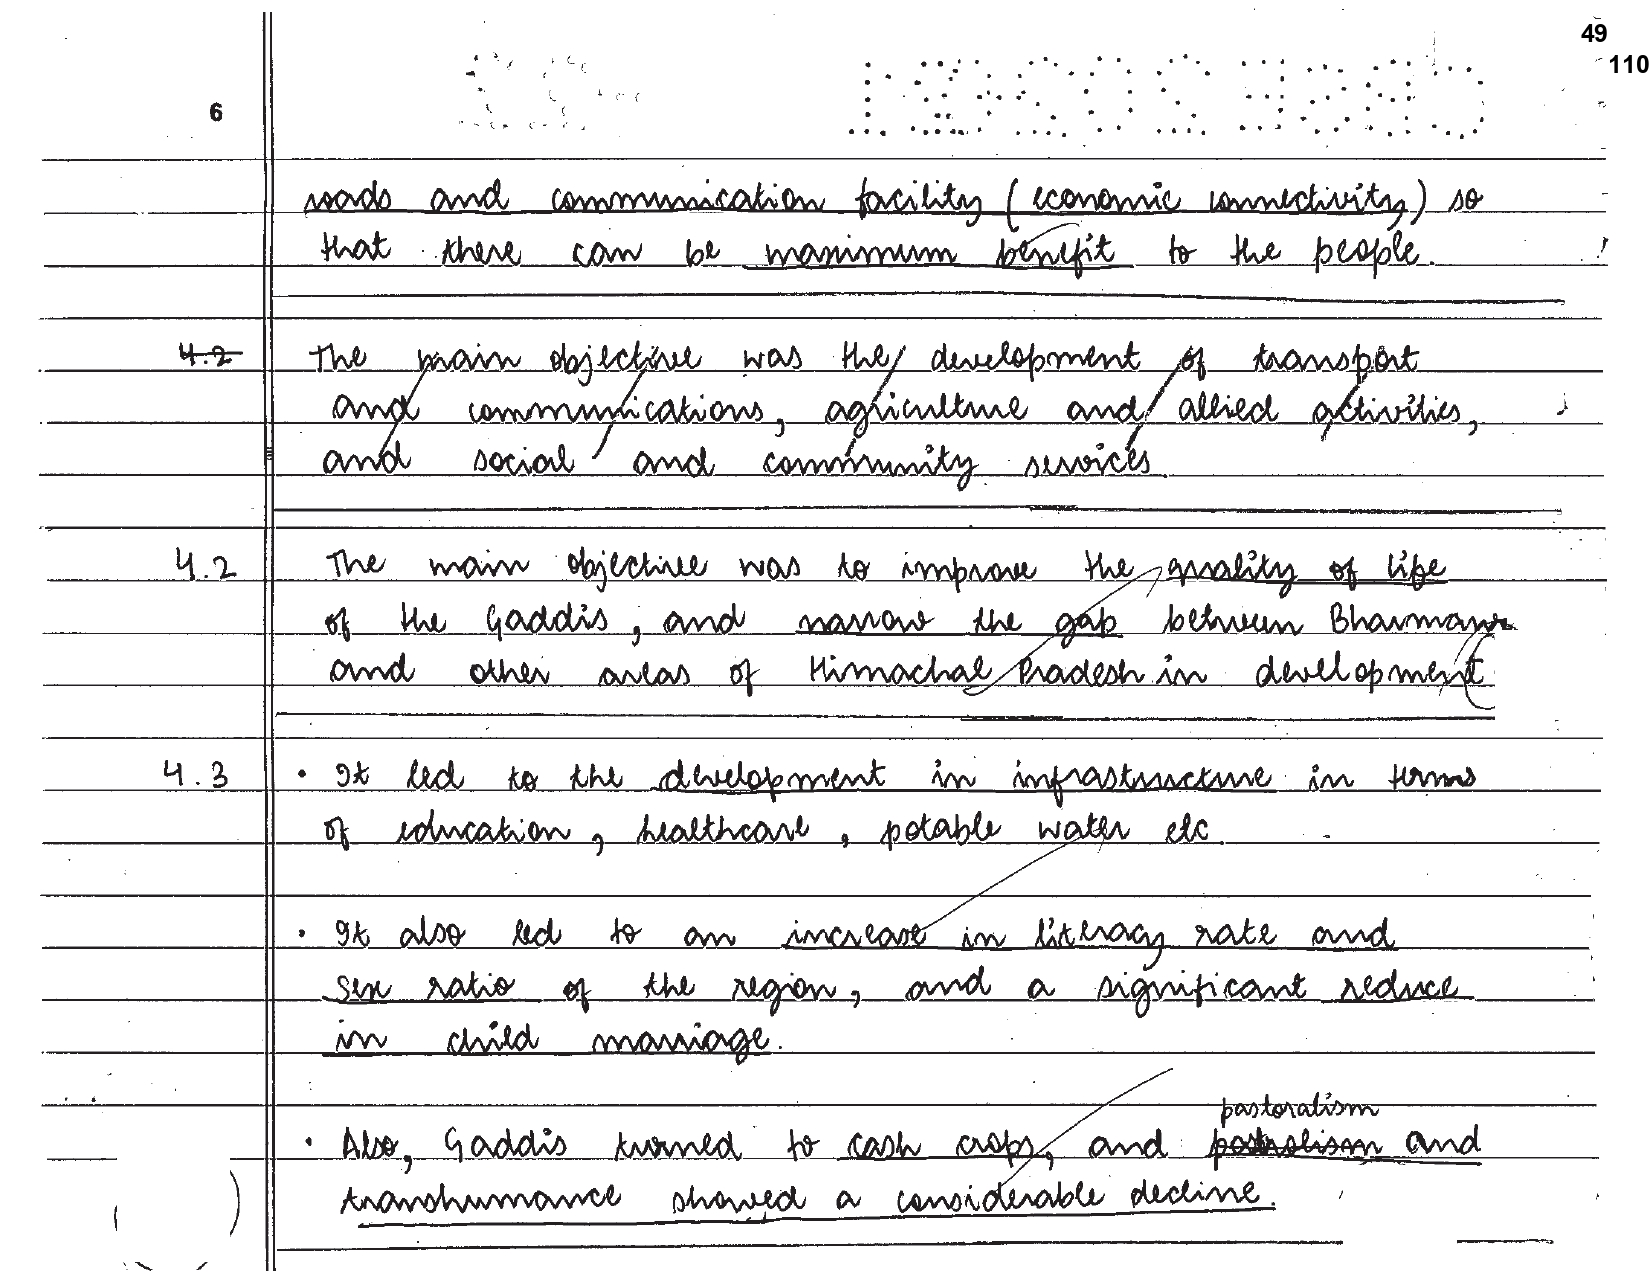 49
110
6
roads and communication facility (economic connectivity) so
that there can be maximum benefit to the people.
4.2 The main objective was the development of transport
and communications, agriculture and allied activities,
and social and community services
4.2 The main objective was to improve the quality of life
of the Gaddis, and narrow the gap between Bharmaur
and other areas of Himachal Pradesh in development
4.3 • It led to the development in infrastructure in terms
of education, healthcare, potable water etc.
• It also led to an increase in literacy rate and
sex ratio of the region, and a significant reduce
in child marriage.
pastoralism
• Also, Gaddis turned to cash crops, and and
transhumance showed a considerable decline.